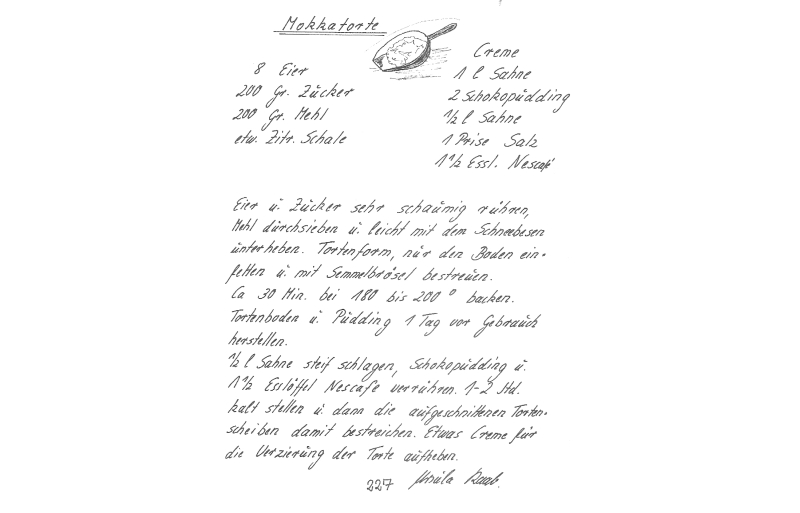 Mokkatorte
8 Eier
200 Gr. Zucker
200 Gr. Mehl
etw. Zitr. Schale
Creme
1 l Sahne
2 Schokopudding
1/2 l Sahne
1 Prise Salz
1 1/2 Essl. Nescafé
Eier u. Zucker sehr schaumig rühren,
Mehl durchsieben u. leicht mit dem Schneebesen
unterheben. Tortenform, nur den Boden ein-
fetten u. mit Semmelbrösel bestreuen.
Ca 30 Min. bei 180 bis 200° backen.
Tortenboden u. Pudding 1 Tag vor Gebrauch
herstellen.
1/2 l Sahne steif schlagen, Schokopudding u.
1 1/2 Esslöffel Nescafe verrühren. 1-2 Std.
kalt stellen u. dann die aufgeschnittenen Torten-
scheiben damit bestreichen. Etwas Creme für
die Verzierung der Torte aufheben.
227 Ursula Raab.